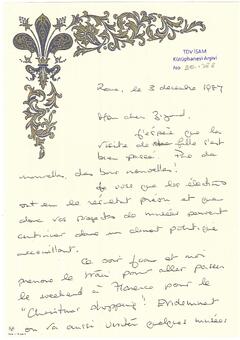 TDV İSAM
Kütüphanesi Arşivi
No
Rome, le 3 décembre 1987
Mon cher Ziyad,
J'espère que la
visite de ta fille s'est
bien passée. Pas de
nouvelles, des bonnes nouvelles!
Je vois que les élections
ont eu le résultat prévu et que
donc vos projets de musées peuvent
continuer dans un climat politique
accueillant.
Ce soir Joan et moi
prenons le train pour aller passer
le weekend à Florence pour le
"Christmas shopping"! Evidemment
on va aussi visiter quelques musées